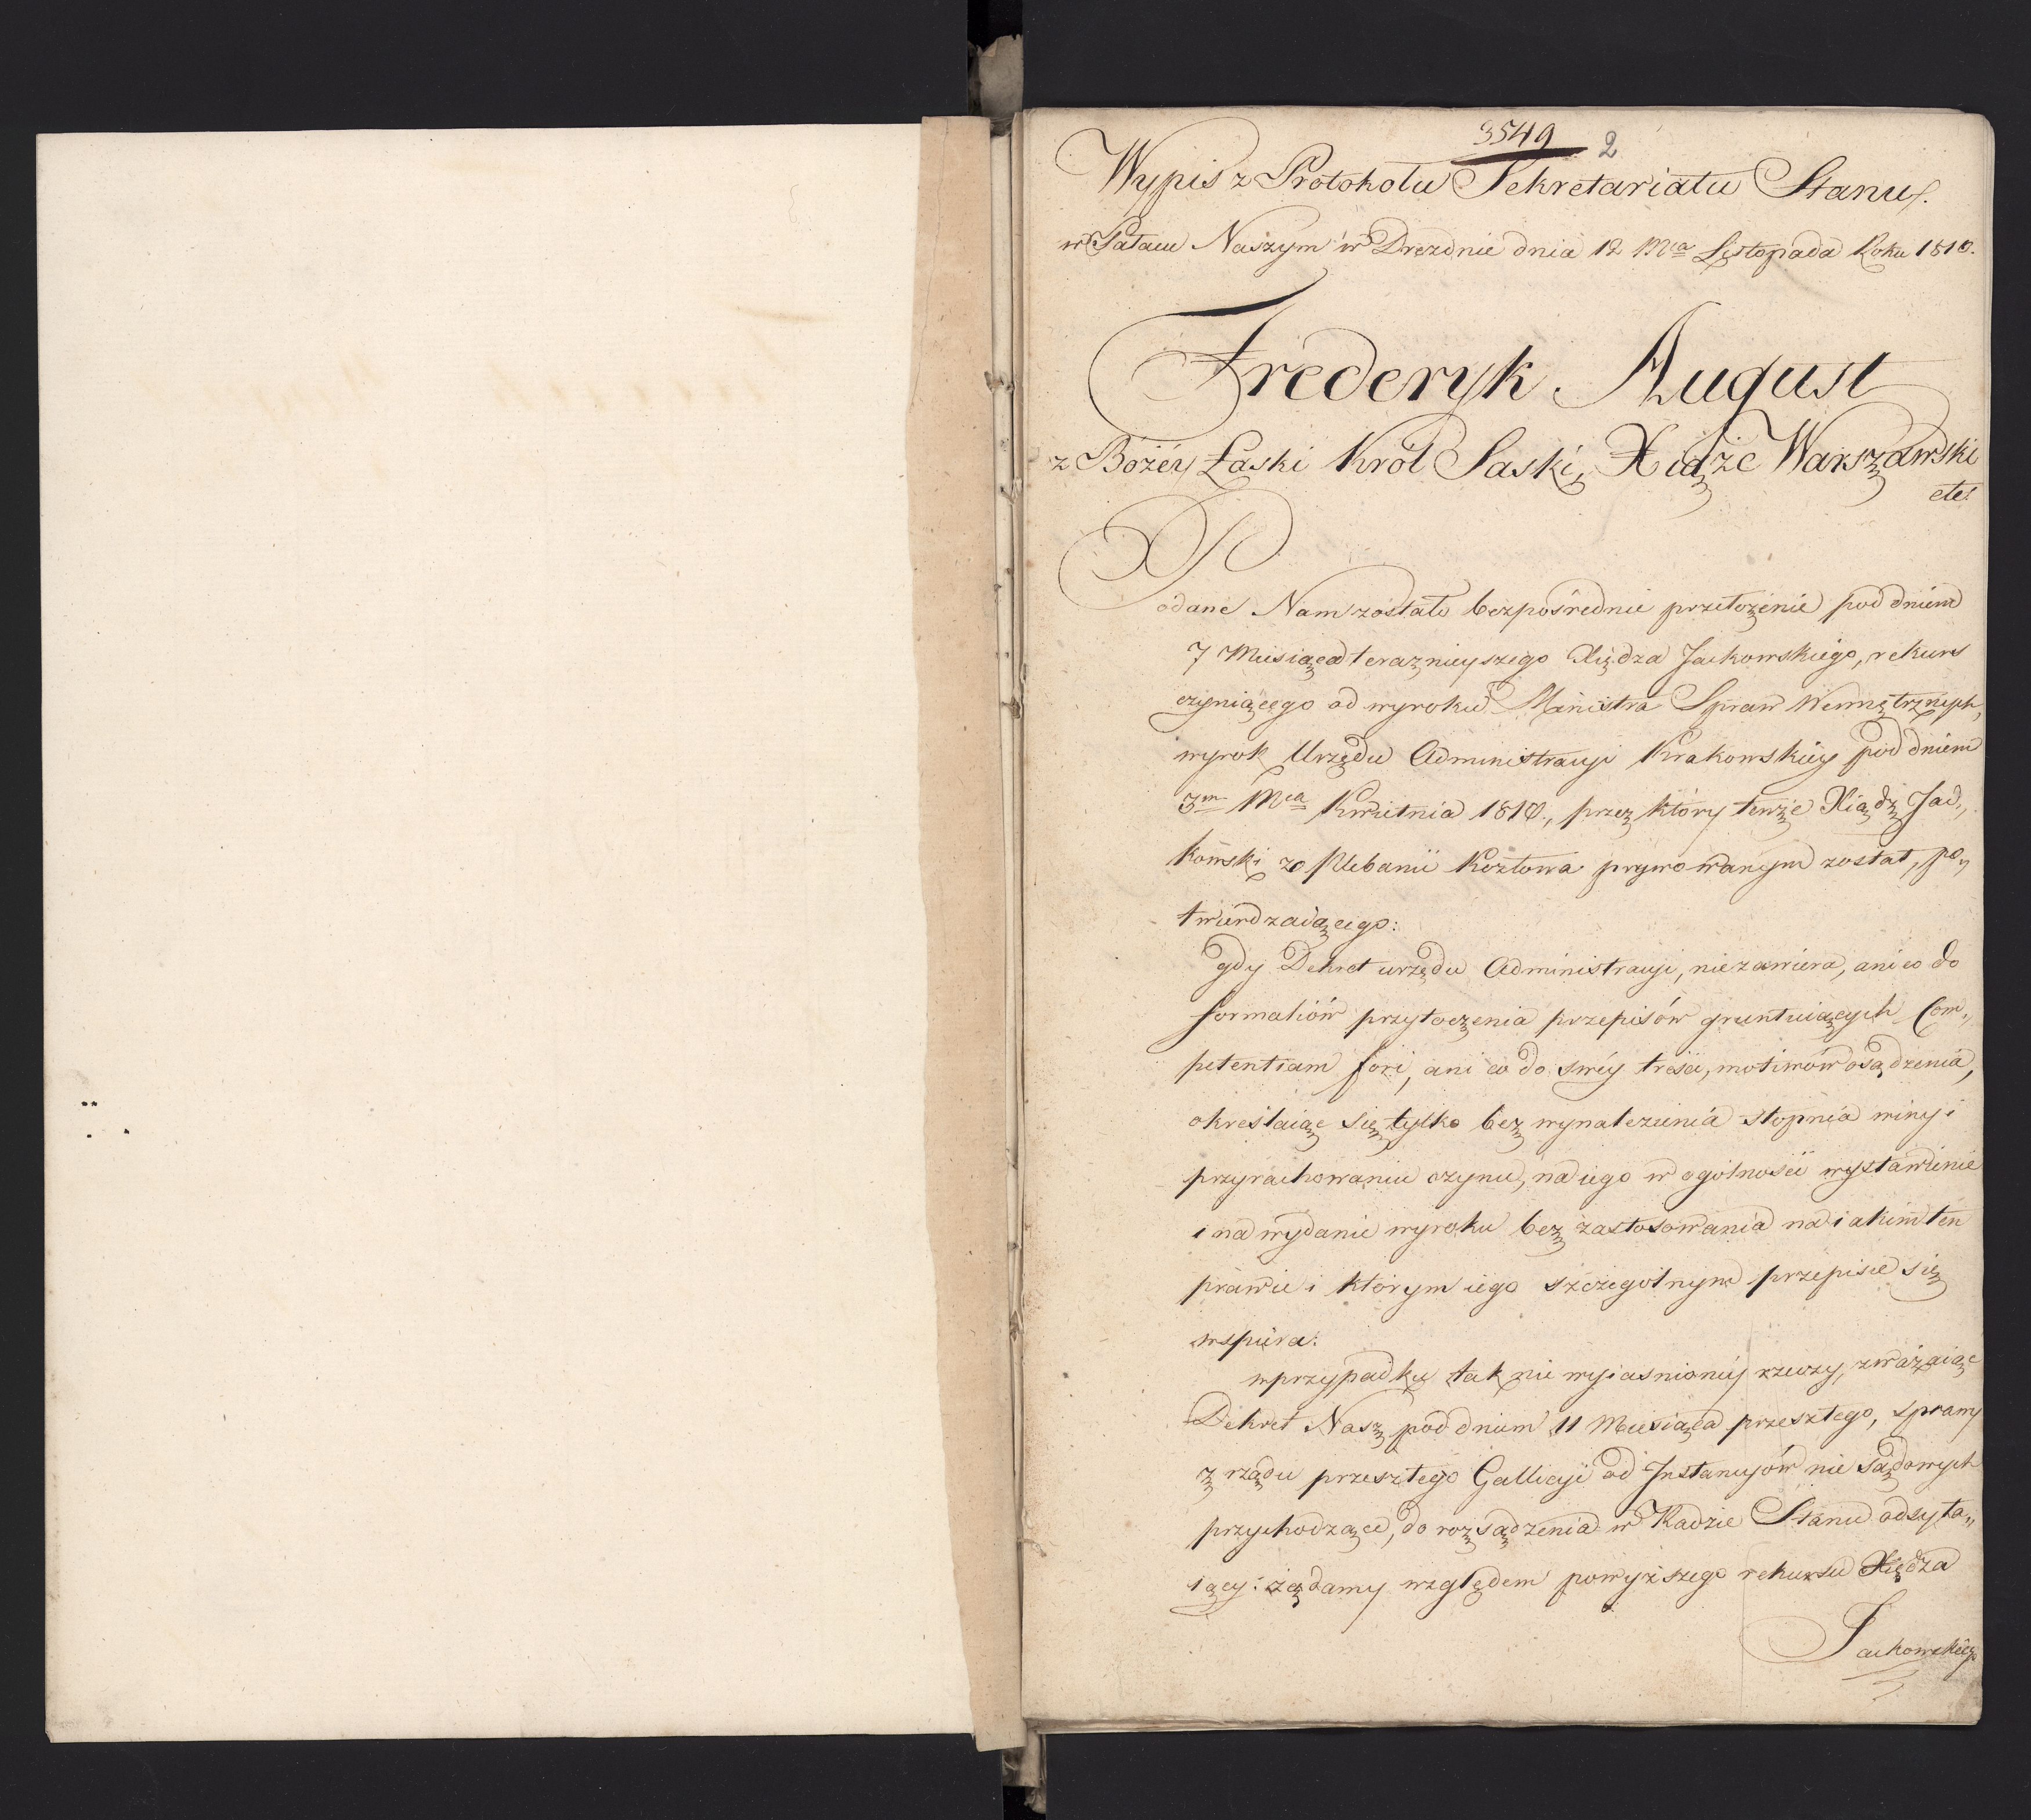 3549 2
Wypis z Protokołu Sekretariatu Stanu.
w Pałacu Naszym w Dreznie dnia 12 Mca Listopada Roku 1810.
Frederyk August
z Bożéy Łaski Król Saski, Xiąże Warszawski
etc.
Podane Nam zostało bezpośrednie przełożenie pod dniem
7 Miesiąca teraznieyszego Xiędza Jackowskiego, rekurs
czyniącego od wyroku Ministra Spraw Wewnętrznych,
wyrok Urzędu Administracyi Krakowskiey pod dniem
3m Mca Kwietnia 1810., przez który tenże Xiądz Jac„
kowski z Plebanii Kozłowa prywowanym został, po„
twierdzaiącego:
gdy Dekret urzędu Administracyi, niezawiera, ani co do
formaliów przytoczenia przepisów gruntuiących Com„
petentiam fori, ani co do swéy treści, motiwów osądzenia,
okreslaiąc się tylko bez wynalezienia stopnia winy i
przyrachowaniu czynu, na iego w ogólności wystawienie
i na wydanie wyroku bez zastosowania na iakim ten
prawie i którym iego szczególnym przepisie się
wspiera:
w przypadku tak nie wyiasnionéy rzeczy, zważaiąc
Dekret Nasz pod dniem 11 Miesiąca przeszłego, sprawy
z rządu przeszłego Gallicyi od Instancyów nie Sądowych
przychodzące, do rozsądzenia w Radzie Stanu odsyła„
iący: żądamy względem powyższego rekursu Xiędza
Jackowskiego